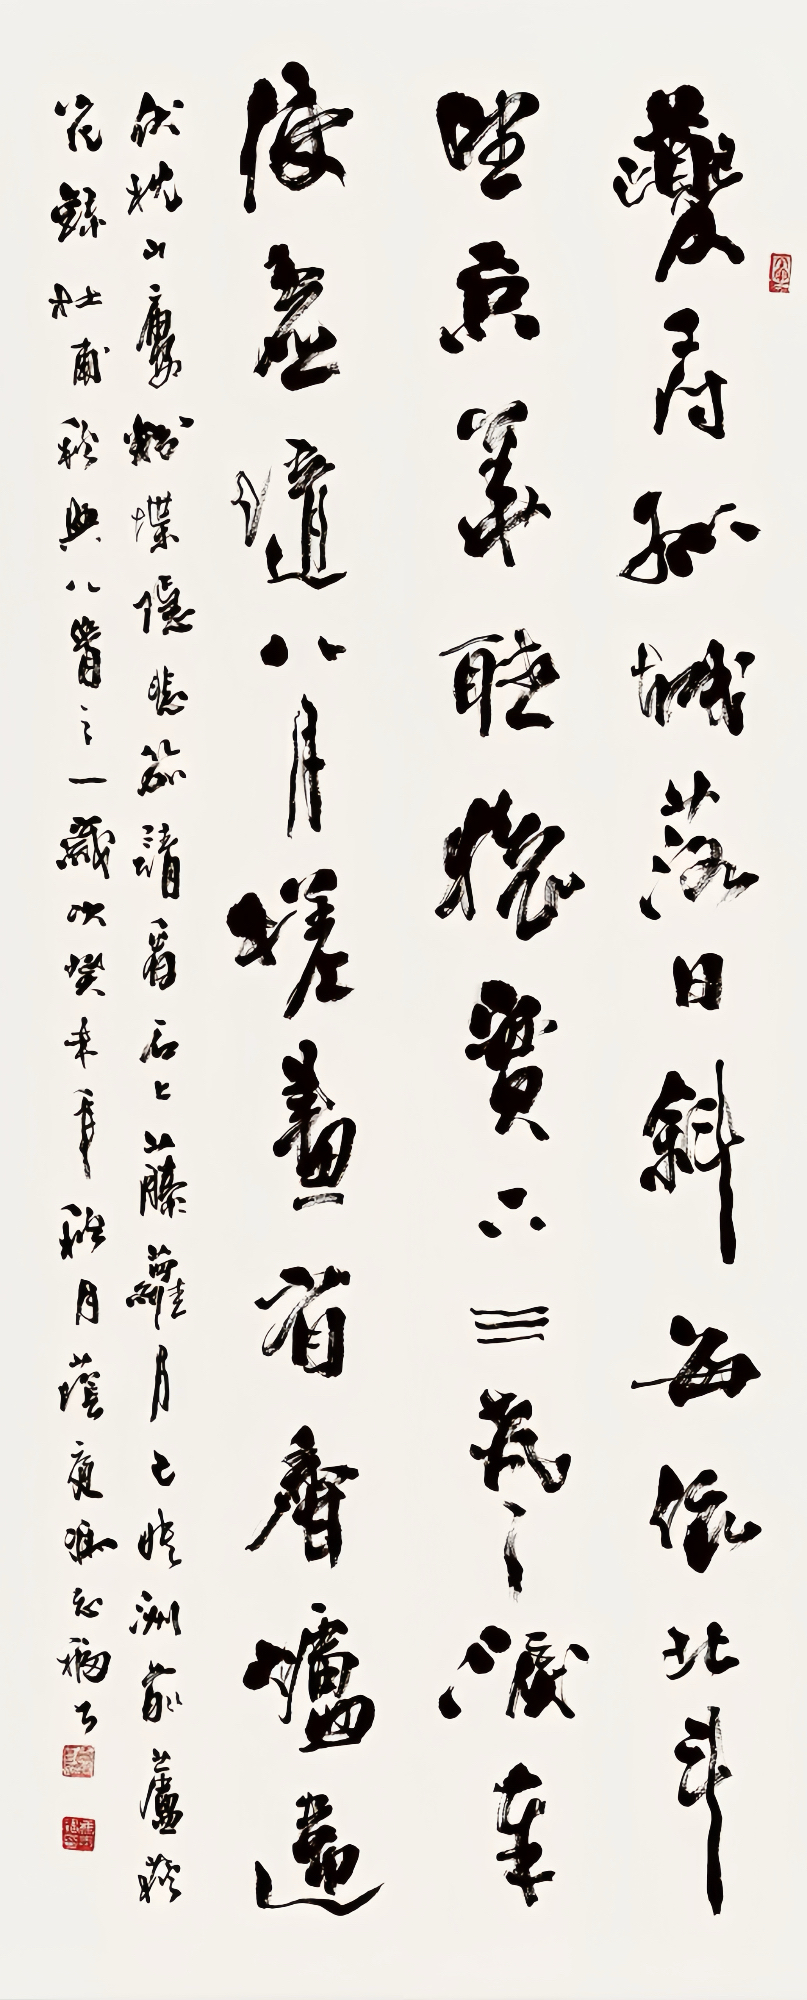 夔府孤城落日斜每依北斗
望京華聽猿實下三聲淚奉
使虛隨八月槎畫省香爐違
伏枕山樓粉堞隱悲笳請看石上藤蘿月已映洲前蘆荻
花錄杜甫秋興八首之一歲次癸未年秋月馮志福书